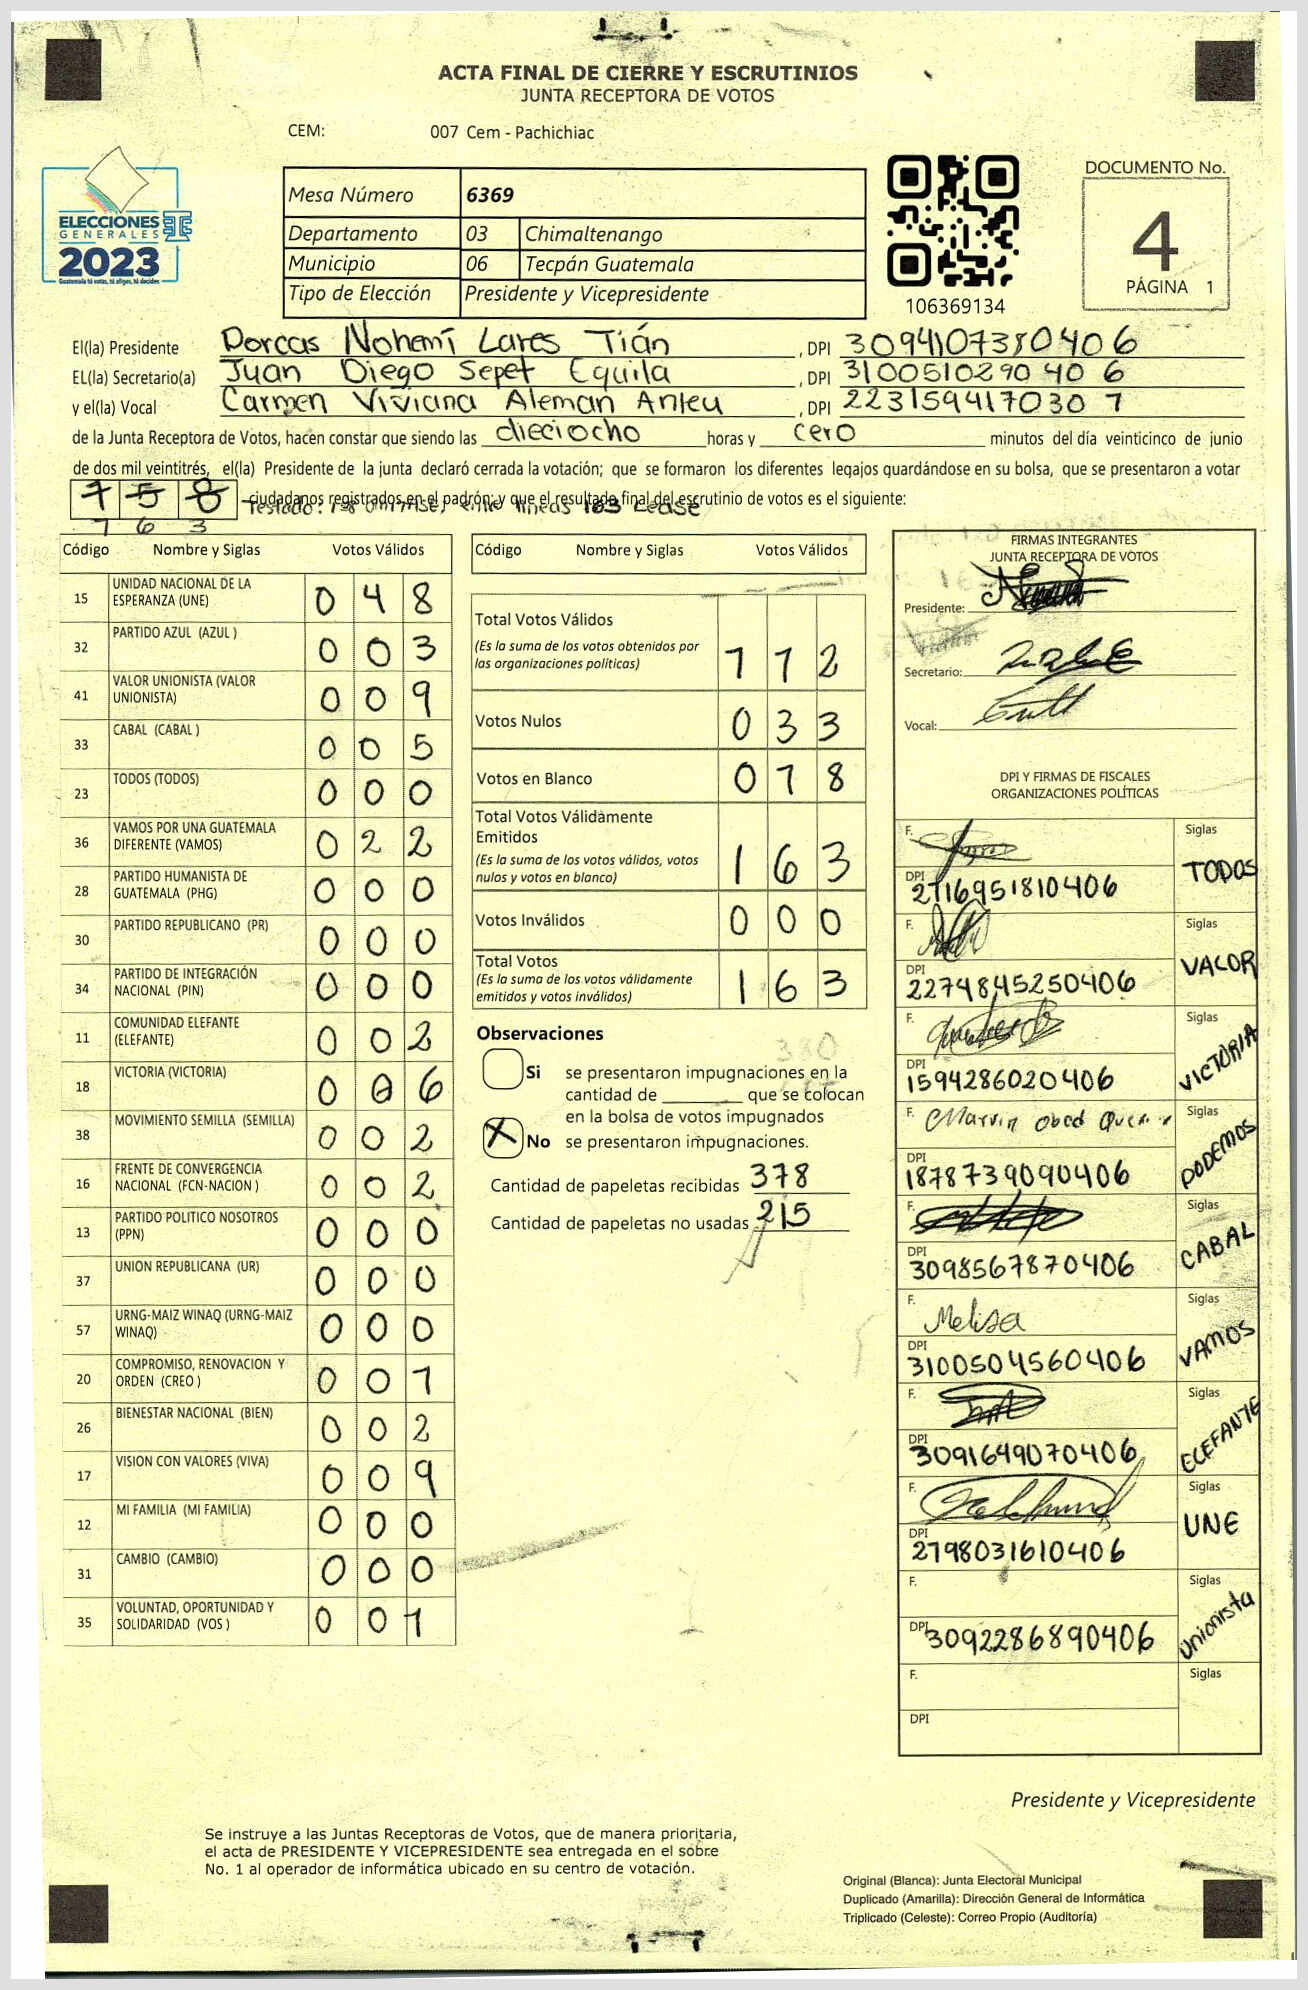 ACTA FINAL DE CIERRE Y ESCRUTINIOS
JUNTA RECEPTORA DE VOTOS
CEM: 007 Cem - Pachichiac
ELECCIONES
GENERALES
2023
Guatemala tú votas, tú eliges, tú decides
Mesa Número 6369
Departamento 03 Chimaltenango
Municipio 06 Tecpán Guatemala
Tipo de Elección Presidente y Vicepresidente
106369134
DOCUMENTO No.
4
PÁGINA 1
El(la) Presidente Dorcas Nohemí Lares Tián , DPI 3094107380406
EL(la) Secretario(a) Juan Diego Sepet Equila , DPI 3100510290406
y el(la) Vocal Carmen Viviana Aleman Anleu , DPI 2231594170307
de la Junta Receptora de Votos, hacen constar que siendo las dieciocho horas y cero minutos del día veinticinco de junio
de dos mil veintitrés, el(la) Presidente de la junta declaró cerrada la votación; que se formaron los diferentes legajos guardándose en su bolsa, que se presentaron a votar
ciudadanos registrados en el padrón; y que el resultado final del escrutinio de votos es el siguiente:
Testado: entre lineas 163 Lease
1 6 3
Código Nombre y Siglas Votos Válidos
15 UNIDAD NACIONAL DE LA ESPERANZA (UNE) 0 4 8
32 PARTIDO AZUL (AZUL ) 0 0 3
41 VALOR UNIONISTA (VALOR UNIONISTA) 0 0 9
33 CABAL (CABAL ) 0 0 5
23 TODOS (TODOS) 0 0 0
36 VAMOS POR UNA GUATEMALA DIFERENTE (VAMOS) 0 2 2
28 PARTIDO HUMANISTA DE GUATEMALA (PHG) 0 0 0
30 PARTIDO REPUBLICANO (PR) 0 0 0
34 PARTIDO DE INTEGRACIÓN NACIONAL (PIN) 0 0 0
11 COMUNIDAD ELEFANTE (ELEFANTE) 0 0 2
18 VICTORIA (VICTORIA) 0 0 6
38 MOVIMIENTO SEMILLA (SEMILLA) 0 0 2
16 FRENTE DE CONVERGENCIA NACIONAL (FCN-NACION ) 0 0 2
13 PARTIDO POLITICO NOSOTROS (PPN) 0 0 0
37 UNION REPUBLICANA (UR) 0 0 0
57 URNG-MAIZ WINAQ (URNG-MAIZ WINAQ) 0 0 0
20 COMPROMISO, RENOVACION Y ORDEN (CREO ) 0 0 1
26 BIENESTAR NACIONAL (BIEN) 0 0 2
17 VISION CON VALORES (VIVA) 0 0 9
12 MI FAMILIA (MI FAMILIA) 0 0 0
31 CAMBIO (CAMBIO) 0 0 0
35 VOLUNTAD, OPORTUNIDAD Y SOLIDARIDAD (VOS ) 0 0 1
Código Nombre y Siglas Votos Válidos
Total Votos Válidos
(Es la suma de los votos obtenidos por
las organizaciones políticas) 1 1 2
Votos Nulos 0 3 3
Votos en Blanco 0 1 8
Total Votos Válidamente
Emitidos
(Es la suma de los votos válidos, votos
nulos y votos en blanco) 1 6 3
Votos Inválidos 0 0 0
Total Votos
(Es la suma de los votos válidamente
emitidos y votos inválidos) 1 6 3
Observaciones
Si se presentaron impugnaciones en la
cantidad de ________ que se colocan
en la bolsa de votos impugnados
X No se presentaron impugnaciones.
Cantidad de papeletas recibidas 378
Cantidad de papeletas no usadas 215
FIRMAS INTEGRANTES
JUNTA RECEPTORA DE VOTOS
Presidente:
Secretario:
Vocal:
DPI Y FIRMAS DE FISCALES
ORGANIZACIONES POLÍTICAS
F. Siglas
DPI 2716951810406 TODOS
F. Siglas
DPI 2274845250406 VALOR
F. Siglas
DPI 1594286020406 VICTORIA
F. Marvin Obed Siglas
DPI 1878739090406 PODEMOS
F. Siglas
DPI 3098567870406 CABAL
F. Melisa Siglas
DPI 3100504560406 VAMOS
F. Siglas
DPI 3091649070406 ELEFANTE
F. Siglas
DPI 2798031610406 UNE
F. Siglas
DPI 3092286890406 Unionista
F. Siglas
DPI
Presidente y Vicepresidente
Se instruye a las Juntas Receptoras de Votos, que de manera prioritaria,
el acta de PRESIDENTE Y VICEPRESIDENTE sea entregada en el sobre
No. 1 al operador de informática ubicado en su centro de votación.
Original (Blanca): Junta Electoral Municipal
Duplicado (Amarilla): Dirección General de Informática
Triplicado (Celeste): Correo Propio (Auditoría)